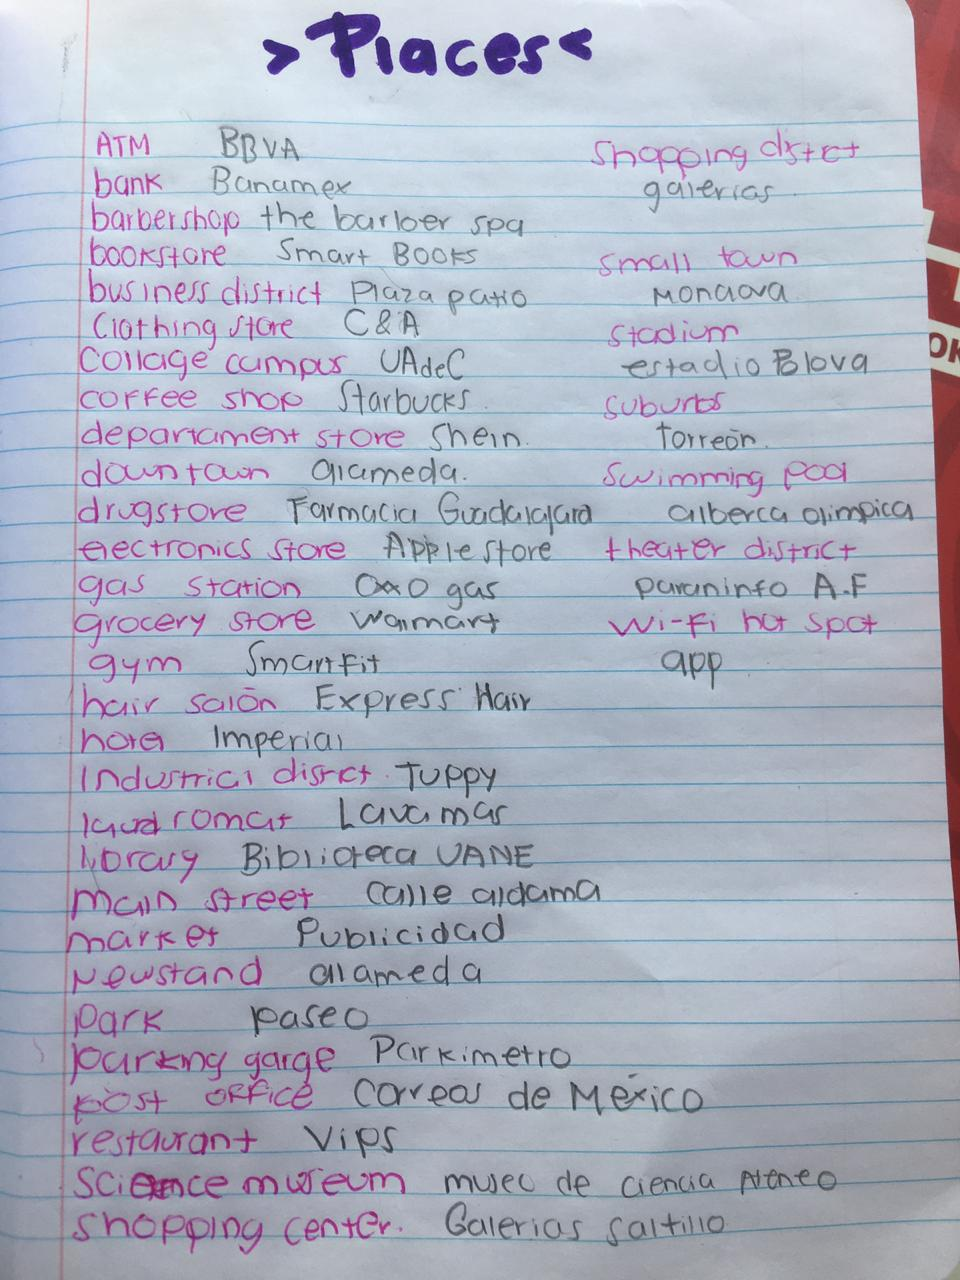 > Places <
ATM BBVA
bank Banamex
barbershop the barber spa
bookstore Smart BOOKS
business district Plaza patio
Clothing store C&A
Collage campus UAdeC
coffee shop Starbucks.
departament store Shein.
downtown alameda.
drugstore Farmacia Guadalajara
electronics store Apple store
gas station OxxO gas
grocery store walmart
gym Smartfit
hair salón Express Hair
hotel Imperial
Industrial distrct. Tuppy
laudromat Lavamas
library Biblioteca UANE
main street calle aldama
market Publicidad
Newstand alameda
park paseo
parking garge Parkimetro
post office Correos de México
restaurant Vips
Science museum museo de ciencia Ateneo
shopping center. Galerias Saltillo
Shopping distrct
galerias
small town
Monclova
stadium
estadio Blova
suburbs
Torreón.
swimming pool
alberca olimpica
theater district
paraninfo A.F
Wi-Fi hot spot
app
OK